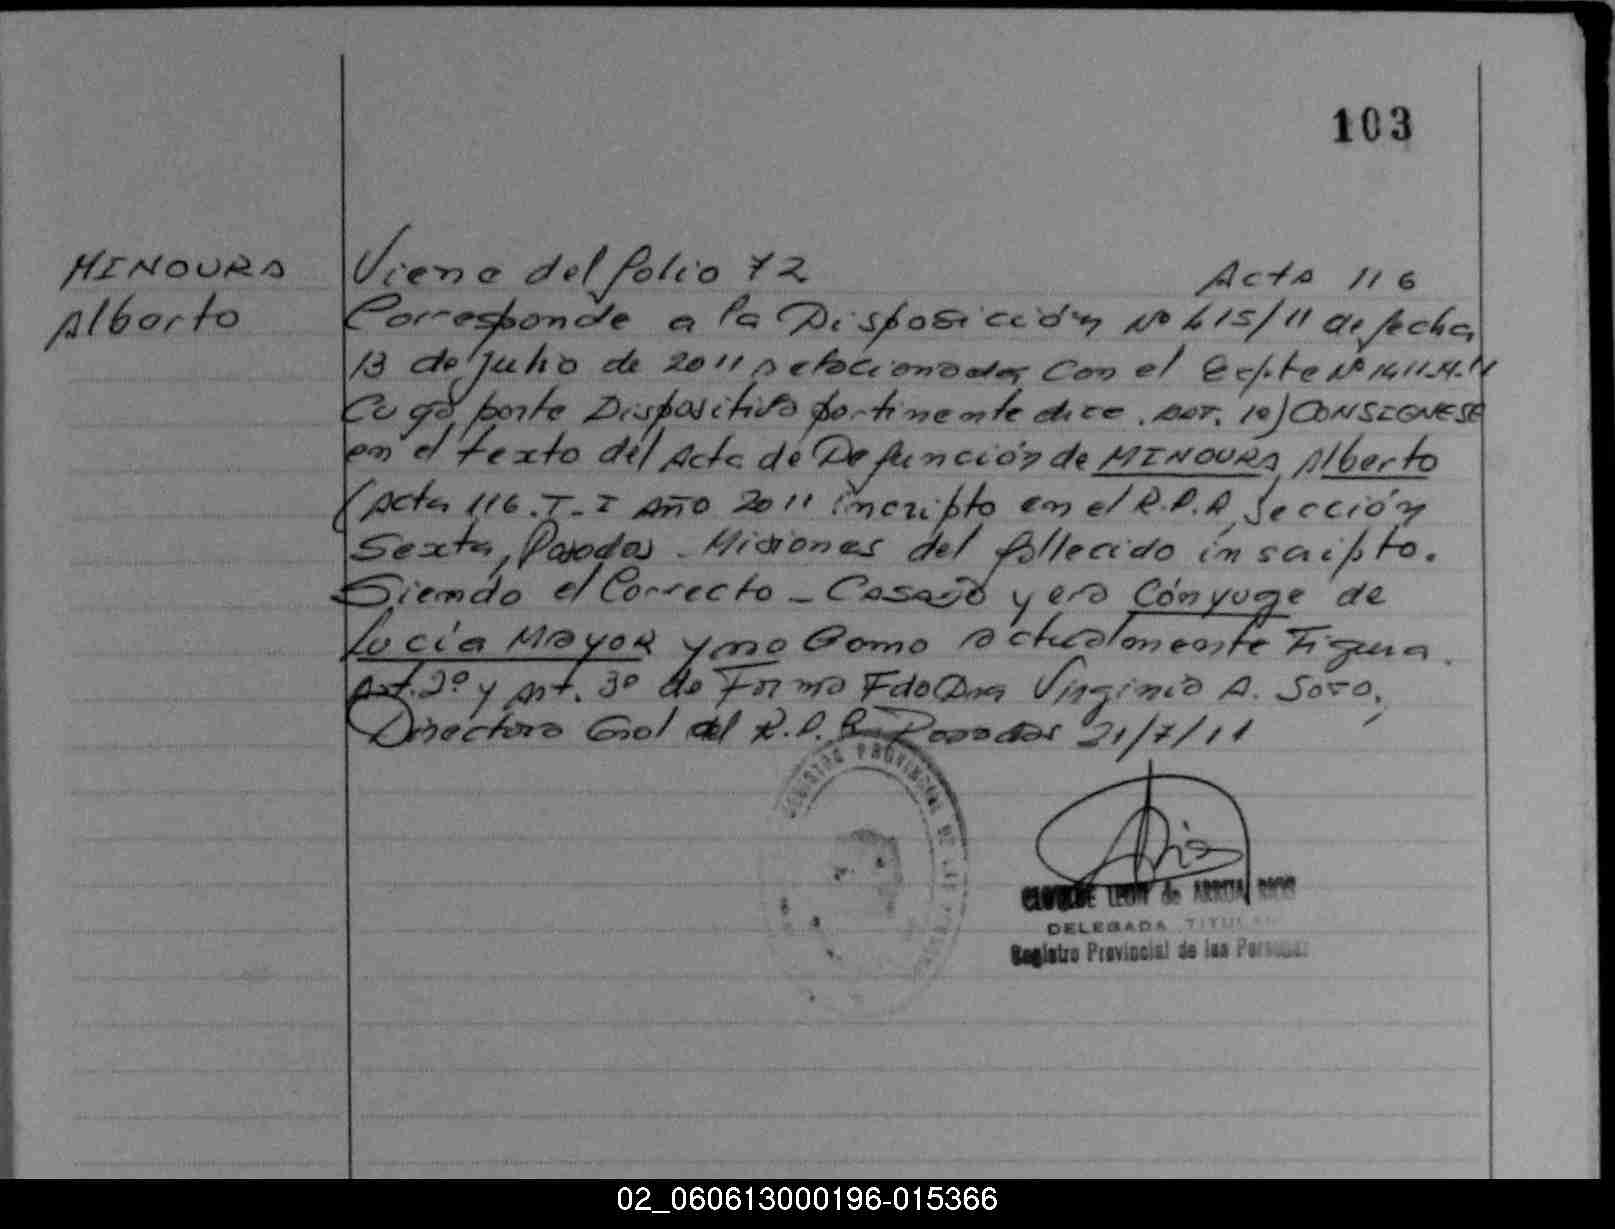 103
MINOURA
Alberto
Viene del folio 72
Acta 116
Corresponde a la Disposición Nº 415/11 de fecha,
13 de Julio de 2011 relacionadas con el Expte Nº 1411.M.11
Cuya parte Dispositiva pertinente dice. ART. 1º) CONSIGNESE
en el texto del Acta de Defunción de MINOURA, Alberto
(Acta 116.T-I Año 2011 incripto en el R.P.P, Sección
Sexta, Posadas - Misiones del fallecido inscripto.
Siendo el Correcto - Casado y era Cónyuge de
Lucía Mayor y no Como actualmente Figura.
Art. 2º y Art. 3º de Forma Fdo Dra Virginia A. Soto,
Directora Gral del R.P.P. Posadas 21/7/11
REGISTRO PROVINCIAL DE LAS PERSONAS
CLOTILDE LEON de ARRUA RIOS
DELEGADA TITULAR
Registro Provincial de las Personas
02_060613000196-015366